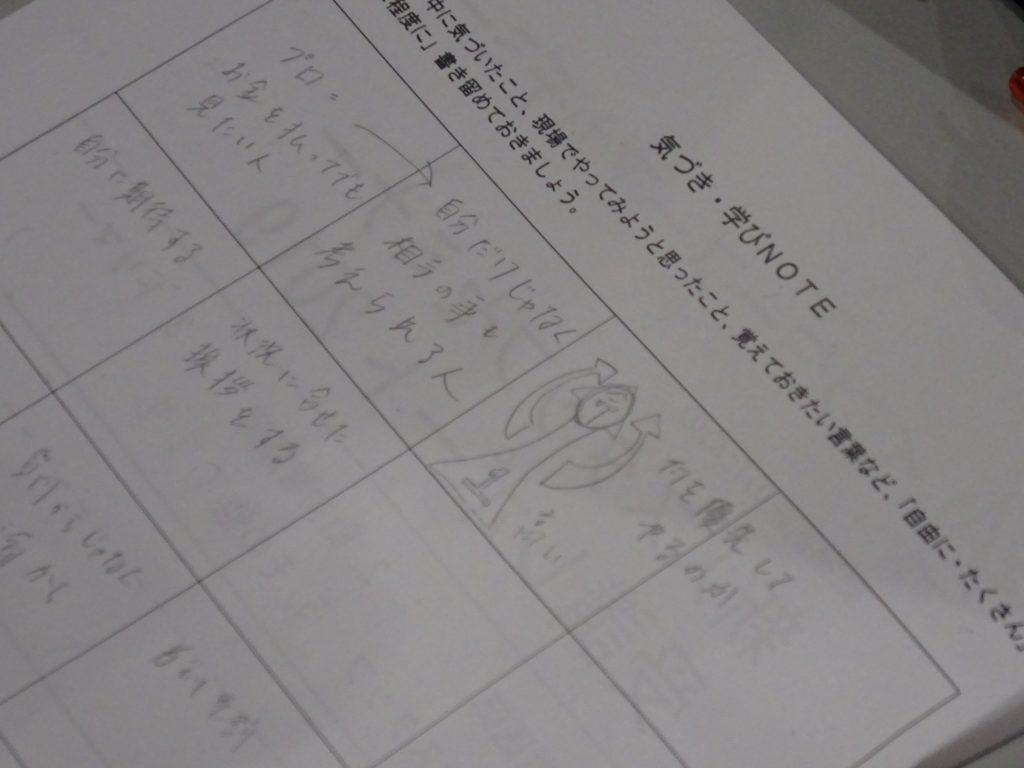 気づき・学びNOTE
中に気づいたこと、現場でやってみようと思ったこと、覚えておきたい言葉など、「自由に・たくさん」
程度に」書き留めておきましょう。
プロ=
お金を払ってても
見たい人
自分だけじゃなく
相手の事も
考えられる人
行
1
高い
何を優先して
やるのか
自分で期待する
状況に合せた
挨拶をする
からじゃなく
から